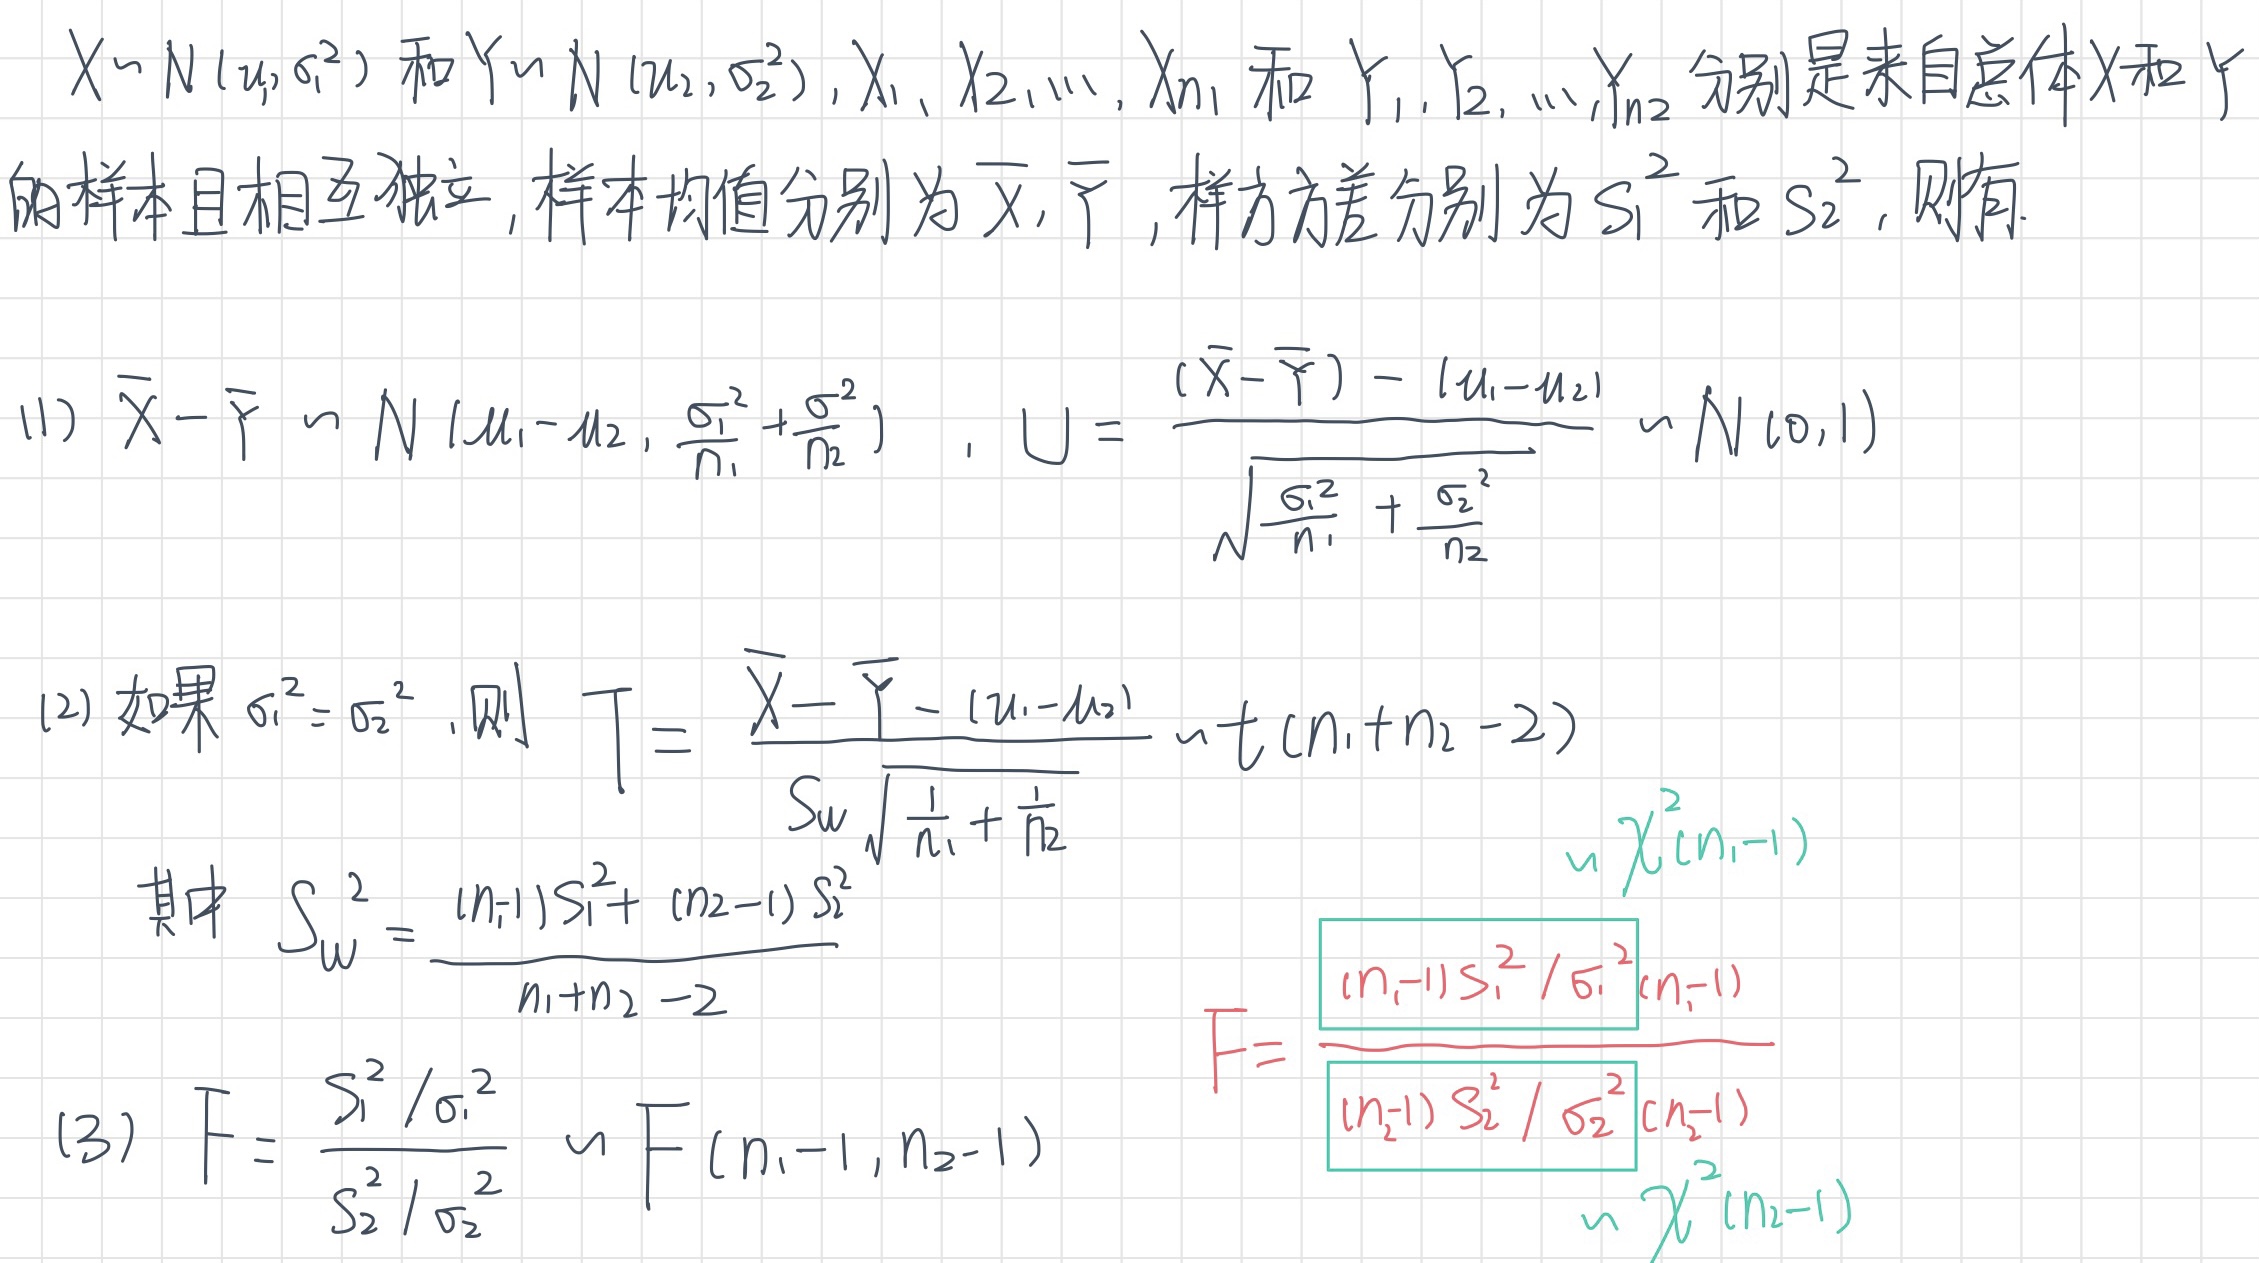 X~N(μ₁,σ₁²) 和 Y~N(μ₂,σ₂²), X₁、X₂,…, Xn₁ 和 Y₁,Y₂,…,Yn₂ 分别是来自总体X和Y
的样本且相互独立,样本均值分别为 X̄, Ȳ,样方方差分别为 S₁² 和 S₂²,则有.
(1) X̄-Ȳ ~ N(μ₁-μ₂, σ₁²/n₁+σ²/n₂), U = (X̄-Ȳ)-(μ₁-μ₂) / √(σ₁²/n₁ + σ₂²/n₂) ~ N(0,1)
(2) 如果 σ₁²=σ₂²,则 T = X̄-Ȳ-(μ₁-μ₂) / Sw√(1/n₁ + 1/n₂) ~ t(n₁+n₂-2)
其中 Sw² = (n₁-1)S₁²+(n₂-1)S₂² / n₁+n₂-2
(3) F = S₁²/σ₁² / S₂²/σ₂² ~ F(n₁-1,n₂-1)
~χ²(n₁-1)
F = (n₁-1)S₁²/σ₁²(n₁-1) / (n₂-1)S₂²/σ₂²(n₂-1)
~χ²(n₂-1)